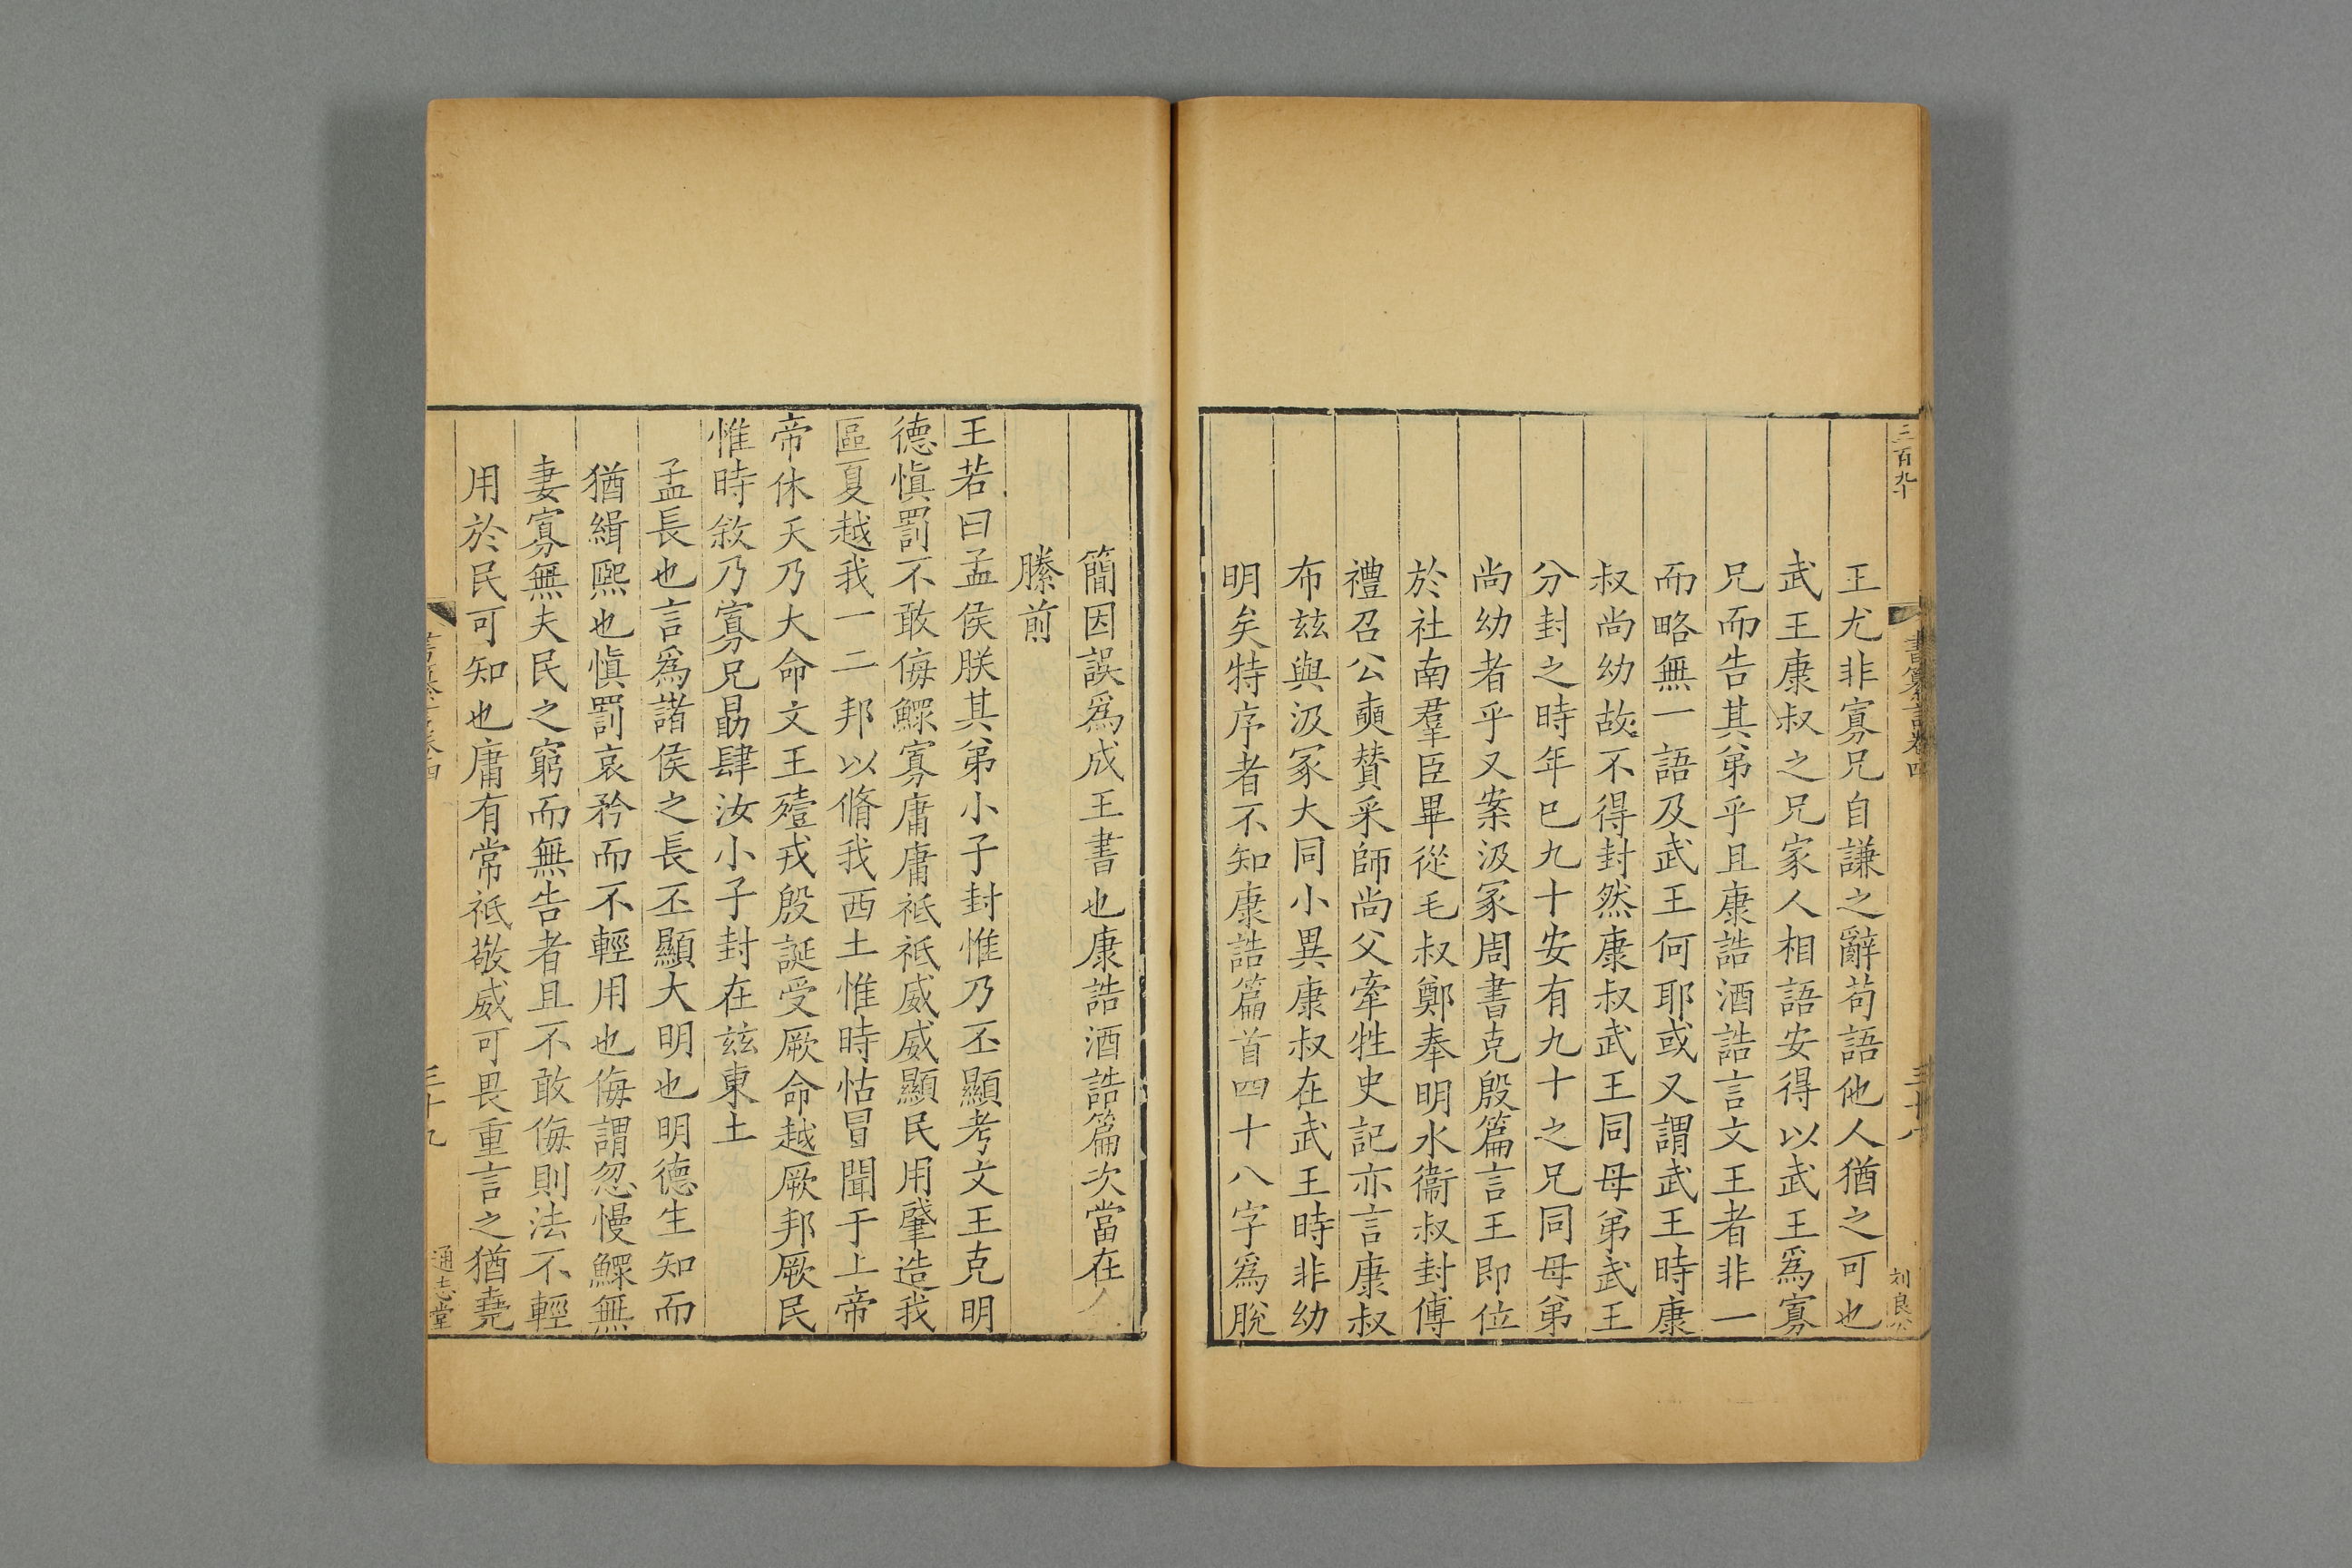 三百九十
書纂言卷四
三十八
刘良
王尤非寡兄自謙之辭苟語他人猶之可也
武王康叔之兄家人相語安得以武王爲寡
兄而告其弟乎且康誥酒誥言文王者非一
而略無一語及武王何耶或又謂武王時康
叔尚幼故不得封然康叔武王同母弟武王
分封之時年巳九十安有九十之兄同母弟
尚幼者乎又案汲冢周書克殷篇言王即位
於社南羣臣畢從毛叔鄭奉明水衞叔封傅
禮召公奭贊采師尚父牽牲史記亦言康叔
布玆與汲冢大同小異康叔在武王時非幼
明矣特序者不知康誥篇首四十八字爲脫
簡因誤爲成王書也康誥酒誥篇次當在
縢前
王若曰孟侯朕其弟小子封惟乃丕顯考文王克明
德愼罰不敢侮鰥寡庸庸祗祗威威顯民用肇造我
區夏越我一二邦以脩我西土惟時怙冒聞于上帝
帝休天乃大命文王殪戎殷誕受厥命越厥邦厥民
惟時敘乃寡兄勗肆汝小子封在玆東土
孟長也言爲諸侯之長丕顯大明也明德生知而
猶緝熙也愼罰哀矜而不輕用也侮謂忽慢鰥無
妻寡無夫民之窮而無告者且不敢侮則法不輕
用於民可知也庸有常祗敬威可畏重言之猶堯
三十九
通志堂